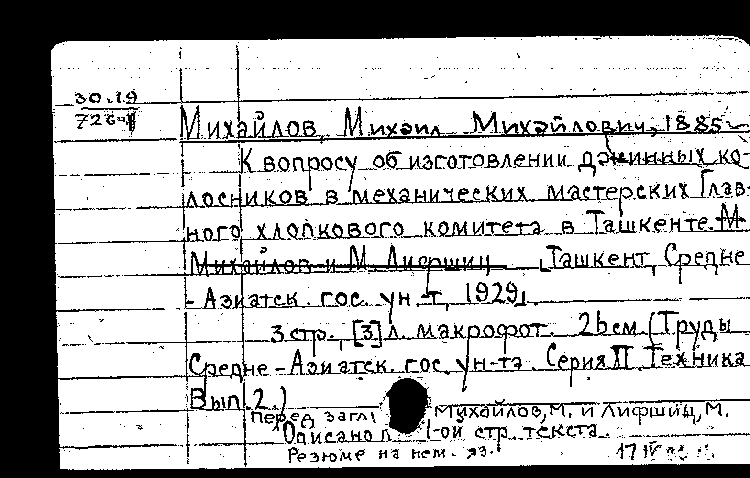 30.19
726
Михайлов, Михаил Михайлович, 1885-
К вопросу об изготовлении джинных ко-
лосников в механических мастерских Глав-
ного хлопкового комитета в Ташкенте. М.
Михайлов и М. Лифшиц. Ташкент, Средне
-Азиатск. гос. ун-т, 1929.
3 стр., [3] л. макрофот. 26 см. (Труды
Средне-Азиатск. гос. ун-та. Серия II. Техника
Вып. 2.)
Перед загл: Михайлов, М. и Лифшиц, М.
Описано 1-ой стр. текста.
Резюме на нем. яз.
17 IV